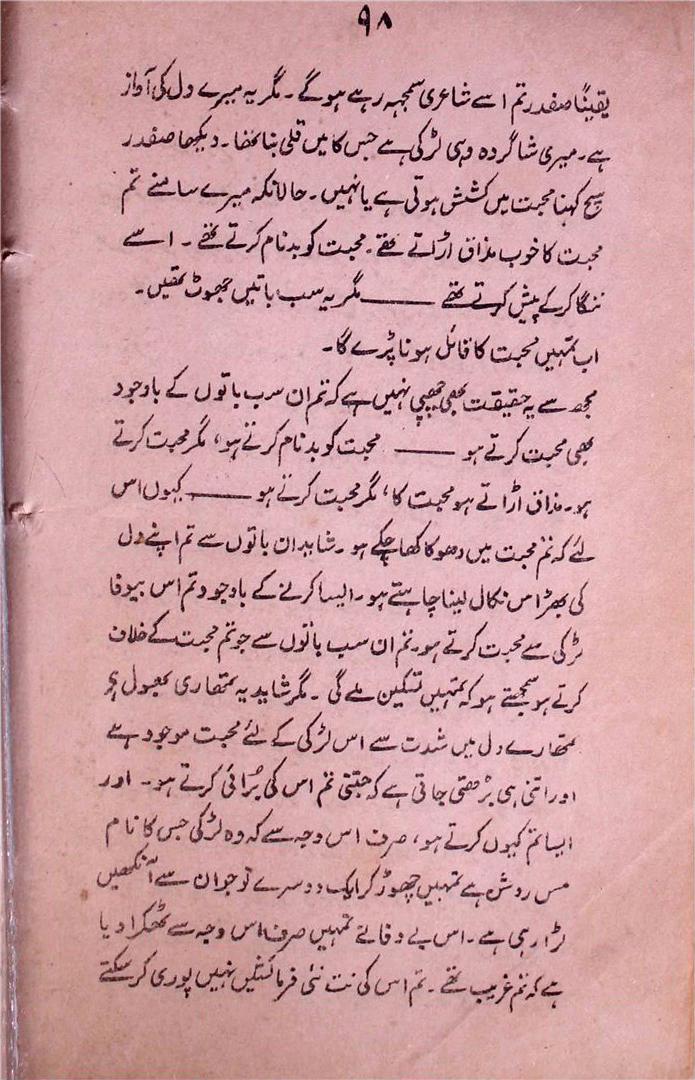 ۹۸
یقیناً صفدر تم اسے شاعری سمجہہ رہے ہوگے۔ مگر یہ میرے دل کی آواز
ہے۔ میری شاگردہ وہی لڑکی ہے جس کا میں قلی بنا تھا۔ دیکھا صفدر
سچ کہنا محبت میں کشش ہوتی ہے یا نہیں۔ حالانکہ میرے سامنے تم
محبت کا خوب مذاق اڑاتے تھے۔ محبت کو بدنام کرتے تھے۔ اسے
ننگا کرکے پیش کرتے تھے ——— مگر یہ سب باتیں جھوٹ تھیں۔
اب تمہیں محبت کا قائل ہونا پڑے گا۔
مجھ سے یہ حقیقت بھی چھپی نہیں ہے کہ تم ان سب باتوں کے باوجود
بھی محبت کرتے ہو ——— محبت کو بدنام کرتے ہو، مگر محبت کرتے
ہو۔ مذاق اڑاتے ہو محبت کا، مگر محبت کرتے ہو ——— کیوں اس
لئے کہ تم محبت میں دھوکا کھا چکے ہو۔ شاید ان باتوں سے تم اپنے دل
کی بھڑاس نکال لینا چاہتے ہو۔ ایسا کرنے کے باوجود تم اس بیوفا
لڑکی سے محبت کرتے ہو۔ تم ان سب باتوں سے جو تم محبت کے خلاف
کرتے ہو سمجھتے ہو کہ تمہیں تسکین ملے گی۔ مگر شاید یہ تمھاری بھول ہو
تمھارے دل میں شدت سے اس لڑکی کے لئے محبت موجود ہے
اور اتنی ہی بڑھتی جاتی ہے کہ جتنی تم اس کی بُرائی کرتے ہو۔ اور
ایسا تم کیوں کرتے ہو، صرف اس وجہ سے کہ وہ لڑکی جس کا نام
مس روش ہے تمہیں چھوڑ کر ایک دوسرے نوجوان سے آنکھیں
لڑا رہی ہے۔ اس بے وفا نے تمہیں صرف اس وجہ سے ٹھکرا دیا
ہے کہ تم غریب تھے۔ تم اس کی نت نئی فرمائشیں نہیں پوری کر سکتے